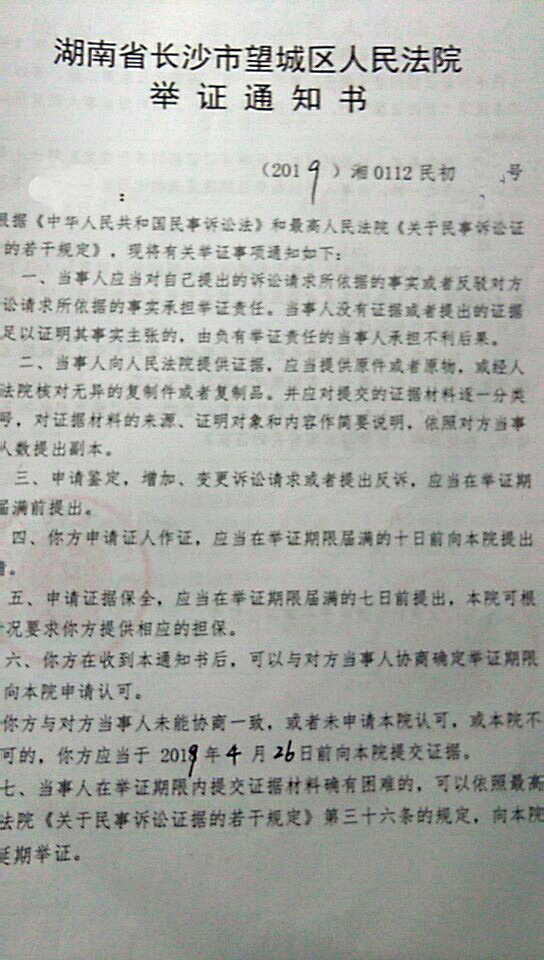 湖南省长沙市望城区人民法院
举证通知书
（2019）湘0112民初 号
：
根据《中华人民共和国民事诉讼法》和最高人民法院《关于民事诉讼证
的若干规定》，现将有关举证事项通知如下：
一、当事人应当对自己提出的诉讼请求所依据的事实或者反驳对方
讼请求所依据的事实承担举证责任。当事人没有证据或者提出的证据
足以证明其事实主张的，由负有举证责任的当事人承担不利后果。
二、当事人向人民法院提供证据，应当提供原件或者原物，或经人
法院核对无异的复制件或者复制品。并应对提交的证据材料逐一分类
号，对证据材料的来源、证明对象和内容作简要说明，依照对方当事
人数提出副本。
三、申请鉴定，增加、变更诉讼请求或者提出反诉，应当在举证期
届满前提出。
四、你方申请证人作证，应当在举证期限届满的十日前向本院提出
。
五、申请证据保全，应当在举证期限届满的七日前提出，本院可根
情况要求你方提供相应的担保。
六、你方在收到本通知书后，可以与对方当事人协商确定举证期限
向本院申请认可。
你方与对方当事人未能协商一致，或者未申请本院认可，或本院不
可的，你方应当于 2019 年 4 月 26 日前向本院提交证据。
七、当事人在举证期限内提交证据材料确有困难的，可以依照最高
法院《关于民事诉讼证据的若干规定》第三十六条的规定，向本院
延期举证。